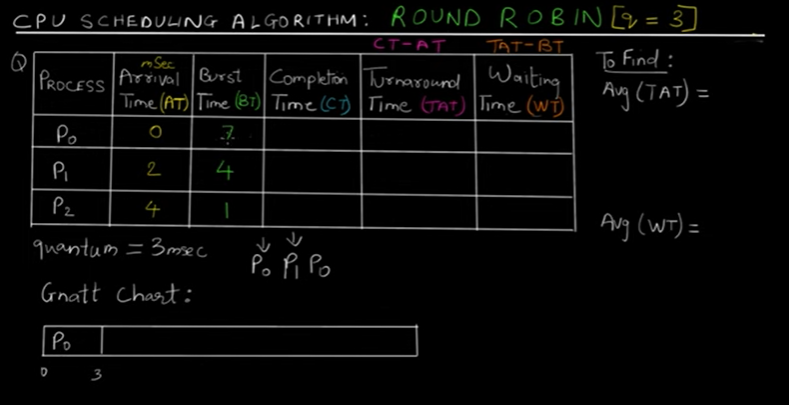 CPU SCHEDULING ALGORITHM: ROUND ROBIN [q = 3]
CT-AT TAT-BT
Q PROCESS mSec Arrival Time (AT) Burst Time (BT) Completion Time (CT) Turnaround Time (TAT) Waiting Time (WT)
P0 0 7
P1 2 4
P2 4 1
To Find:
Avg (TAT) =
Avg (WT) =
quantum = 3msec
P0 P1 P0
Gnatt Chart:
P0
0 3